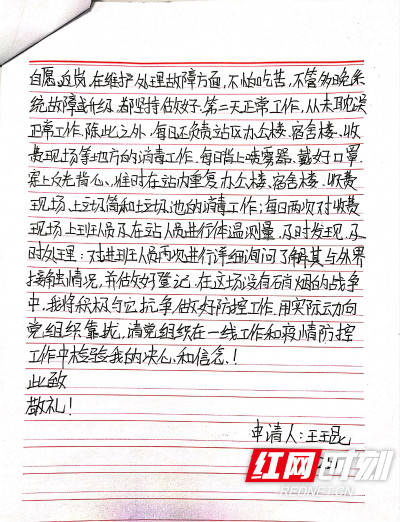 自愿返岗,在维护处理故障方面,不怕吃苦,不管多晚系
统故障或升级,都坚持做好,第二天正常工作,从未耽误
正常工作。除此之外,每日还负责站区办公楼、宿舍楼、收
费现场等地方的消毒工作,每日背上喷雾器、戴好口罩、
穿上反光背心,准时在站内重复办公楼、宿舍楼、收费
现场、垃圾筒和垃圾池的消毒工作;每日两次对收费
现场上班人员及在站人员进行体温测量,及时发现,及
时处理;对进班人员再次进行详细询问了解其与外界
接触情况,并做好登记。在这场没有硝烟的战争
中,我将积极与它抗争做好防控工作,用实际动向
党组织靠拢,请党组织在一线工作和疫情防控
工作中检验我的决心和信念!
此致
敬礼!
申请人:王琨
红网时刻
REDNET.CN